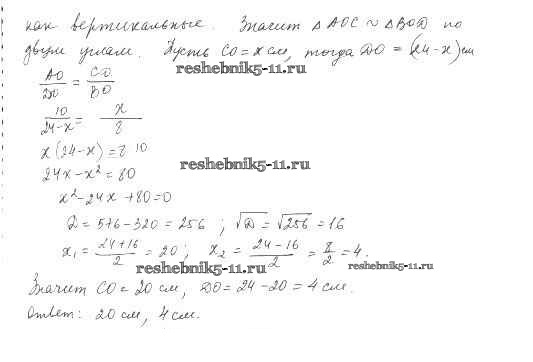 как вертикальные. Значит △AOC ~ △BOD по
двум углам. Пусть CO = x см, тогда DO = (24-x) см
reshebnik5-11.ru
AO/DO = CO/BO
10/(24-x) = x/8
x(24-x) = 8·10
reshebnik5-11.ru
24x - x² = 80
x² - 24x + 80 = 0
D = 576 - 320 = 256 ; √D = √256 = 16
x₁ = (24+16)/2 = 20 ; x₂ = (24-16)/2 = 8/2 = 4.
reshebnik5-11.ru reshebnik5-11.ru
Значит CO = 20 см, DO = 24 - 20 = 4 см.
Ответ: 20 см, 4 см.